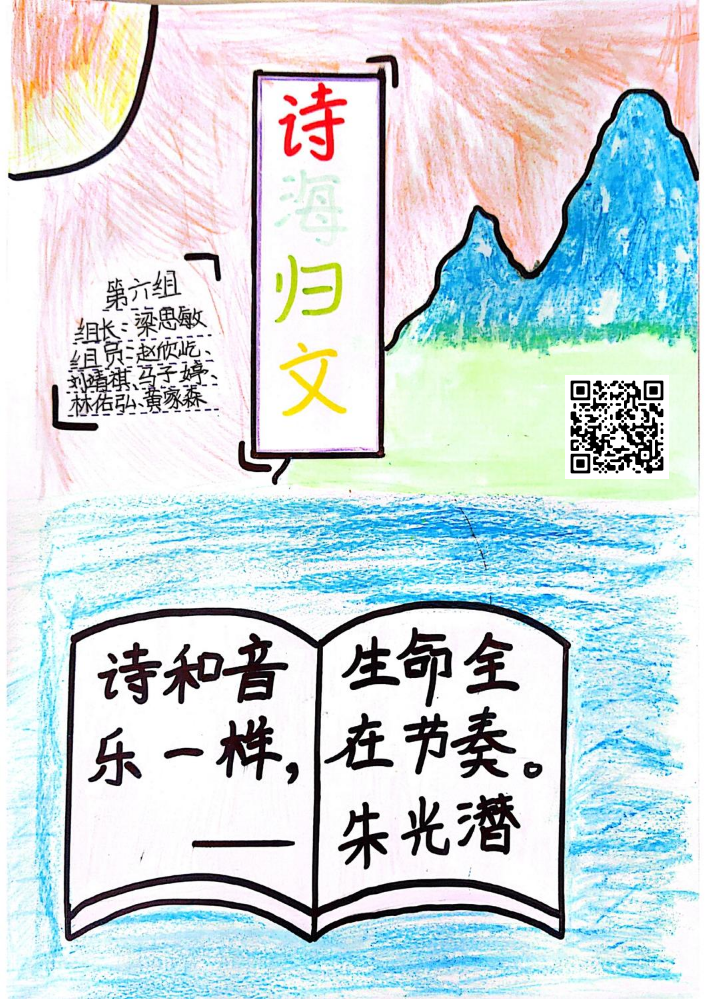 诗海归文
第六组
组长：梁思敏
组员：赵欣屹、
刘靖祺、马子婷、
林佑弘、黄家森
诗和音
乐一样，
生命全
在节奏。
——朱光潜